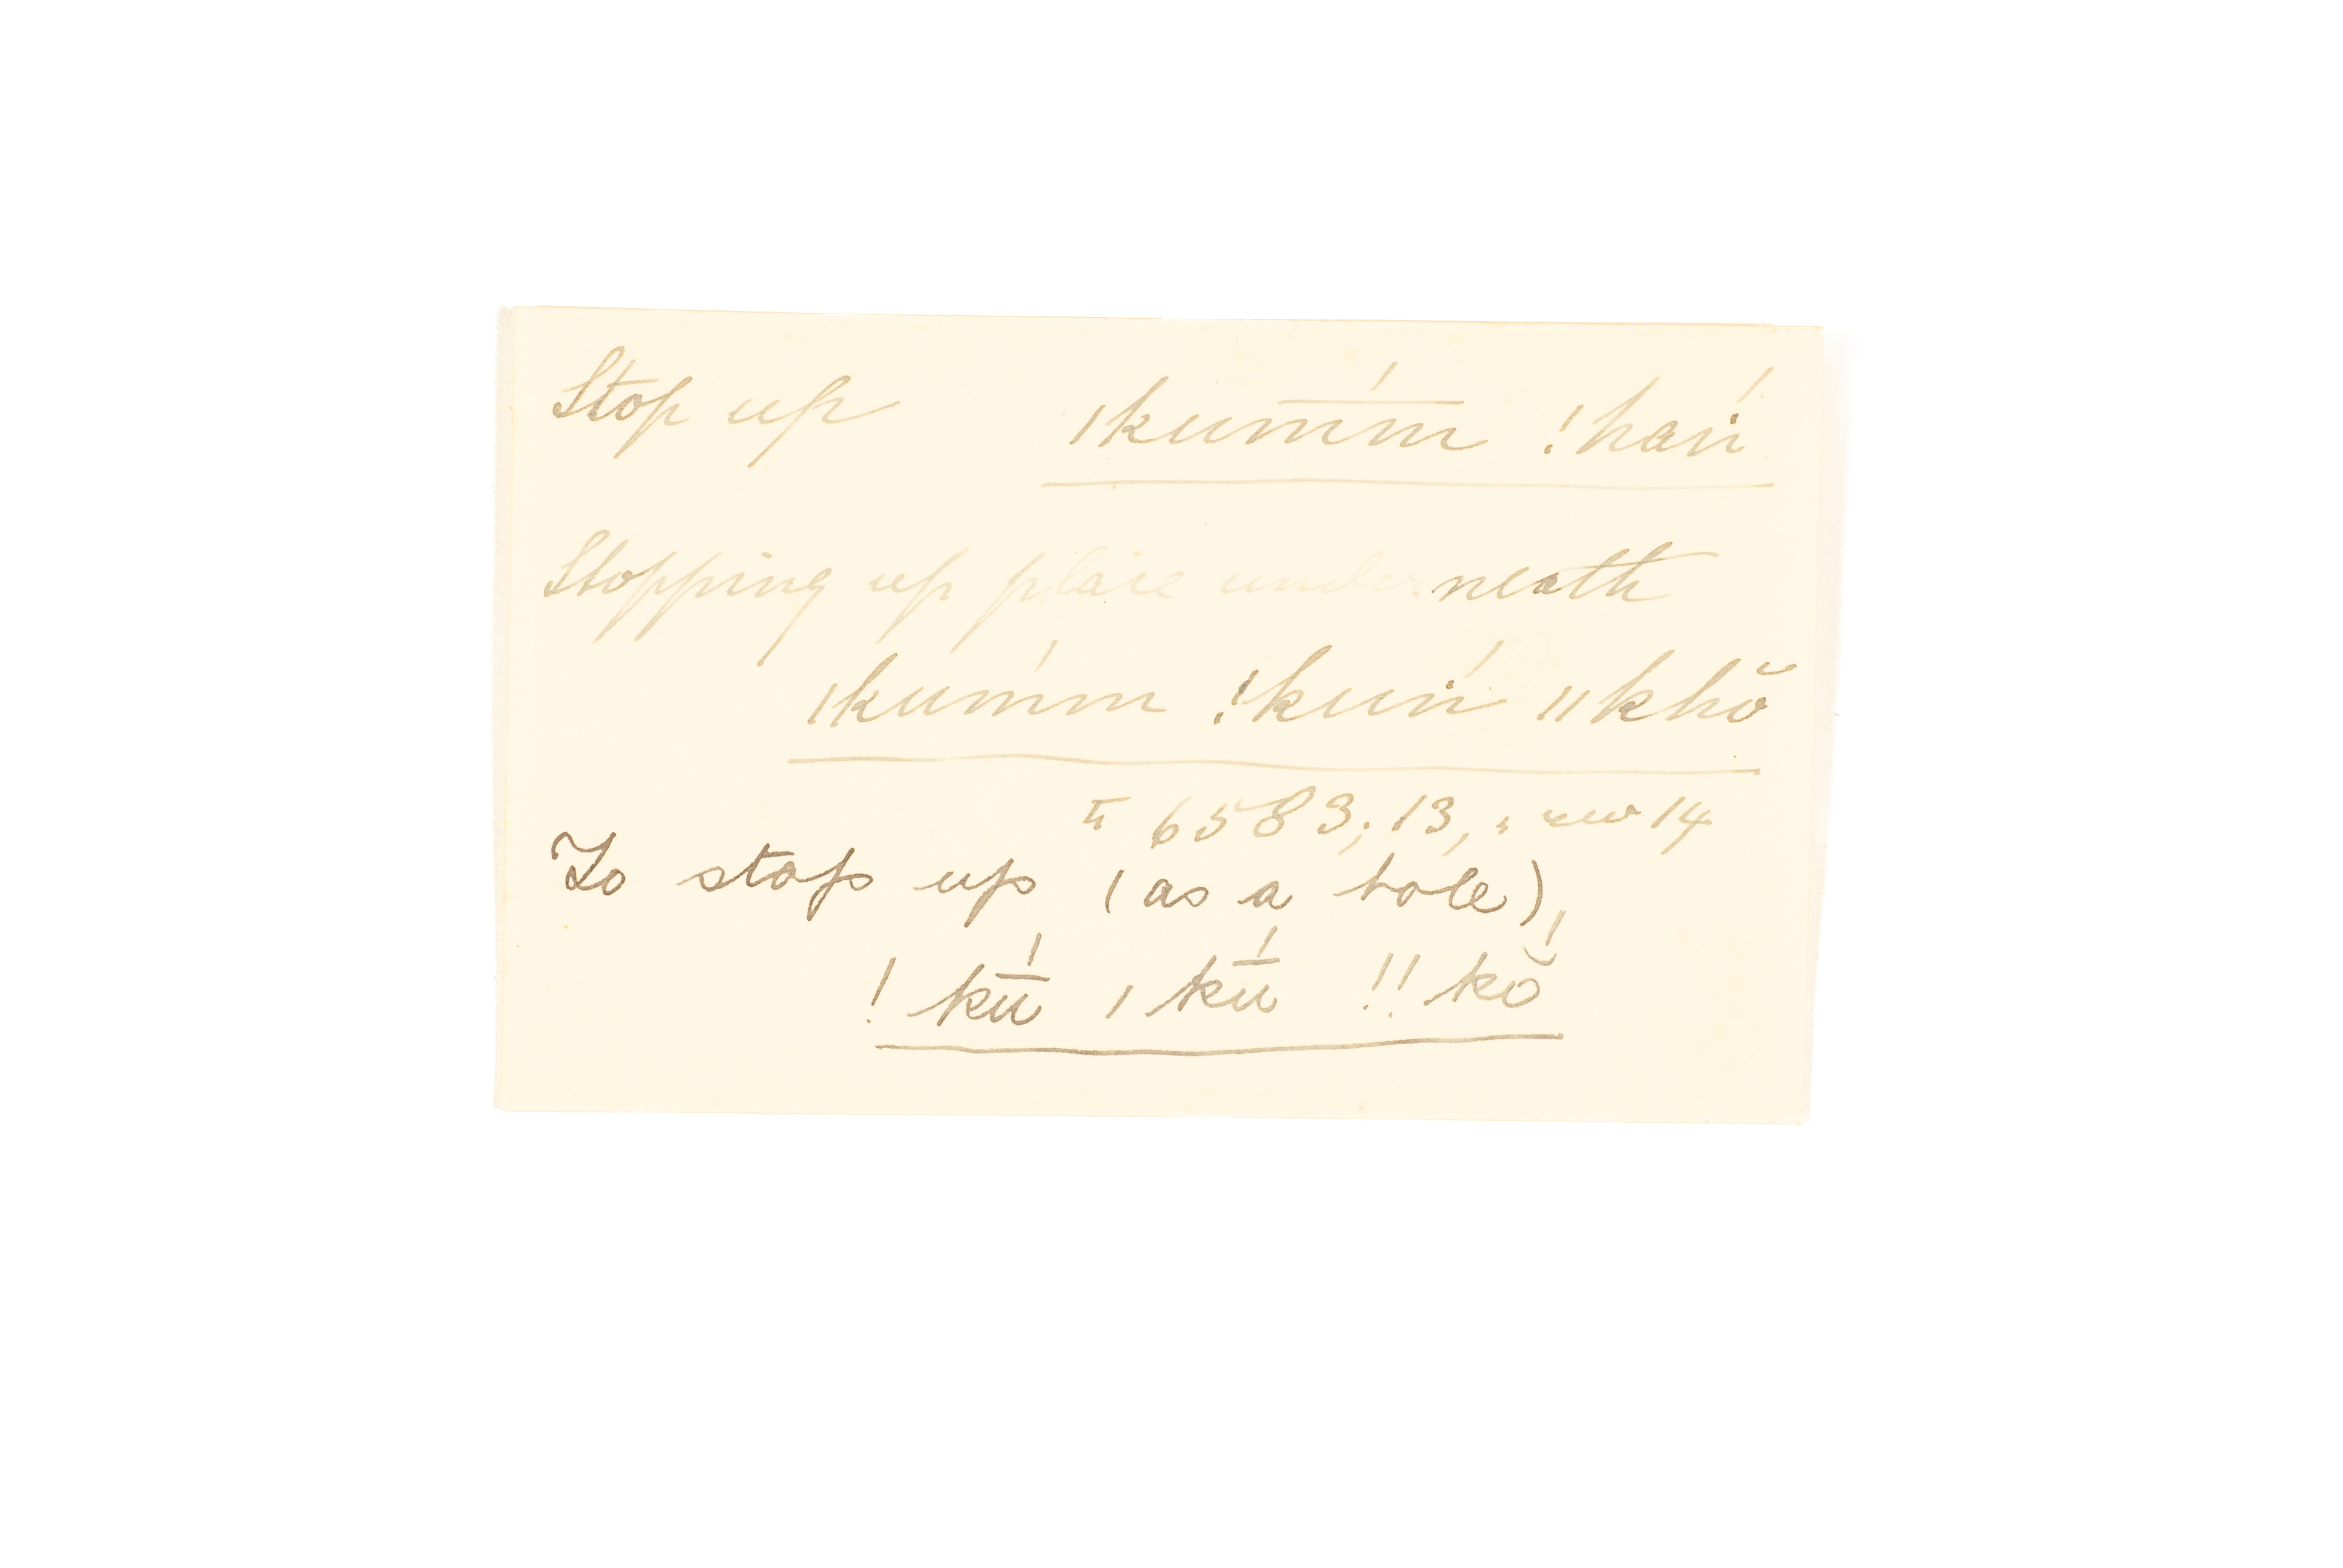 Stop up ǀkum̄́m ǃhaṅ́
Stopping up place underneath
ǀkuḿm ǃkuṅ́ ǁkhŏ
6583, 13, 14
To stop up (as a hole),
! kū́ ǀ kū́ !! kŏ́